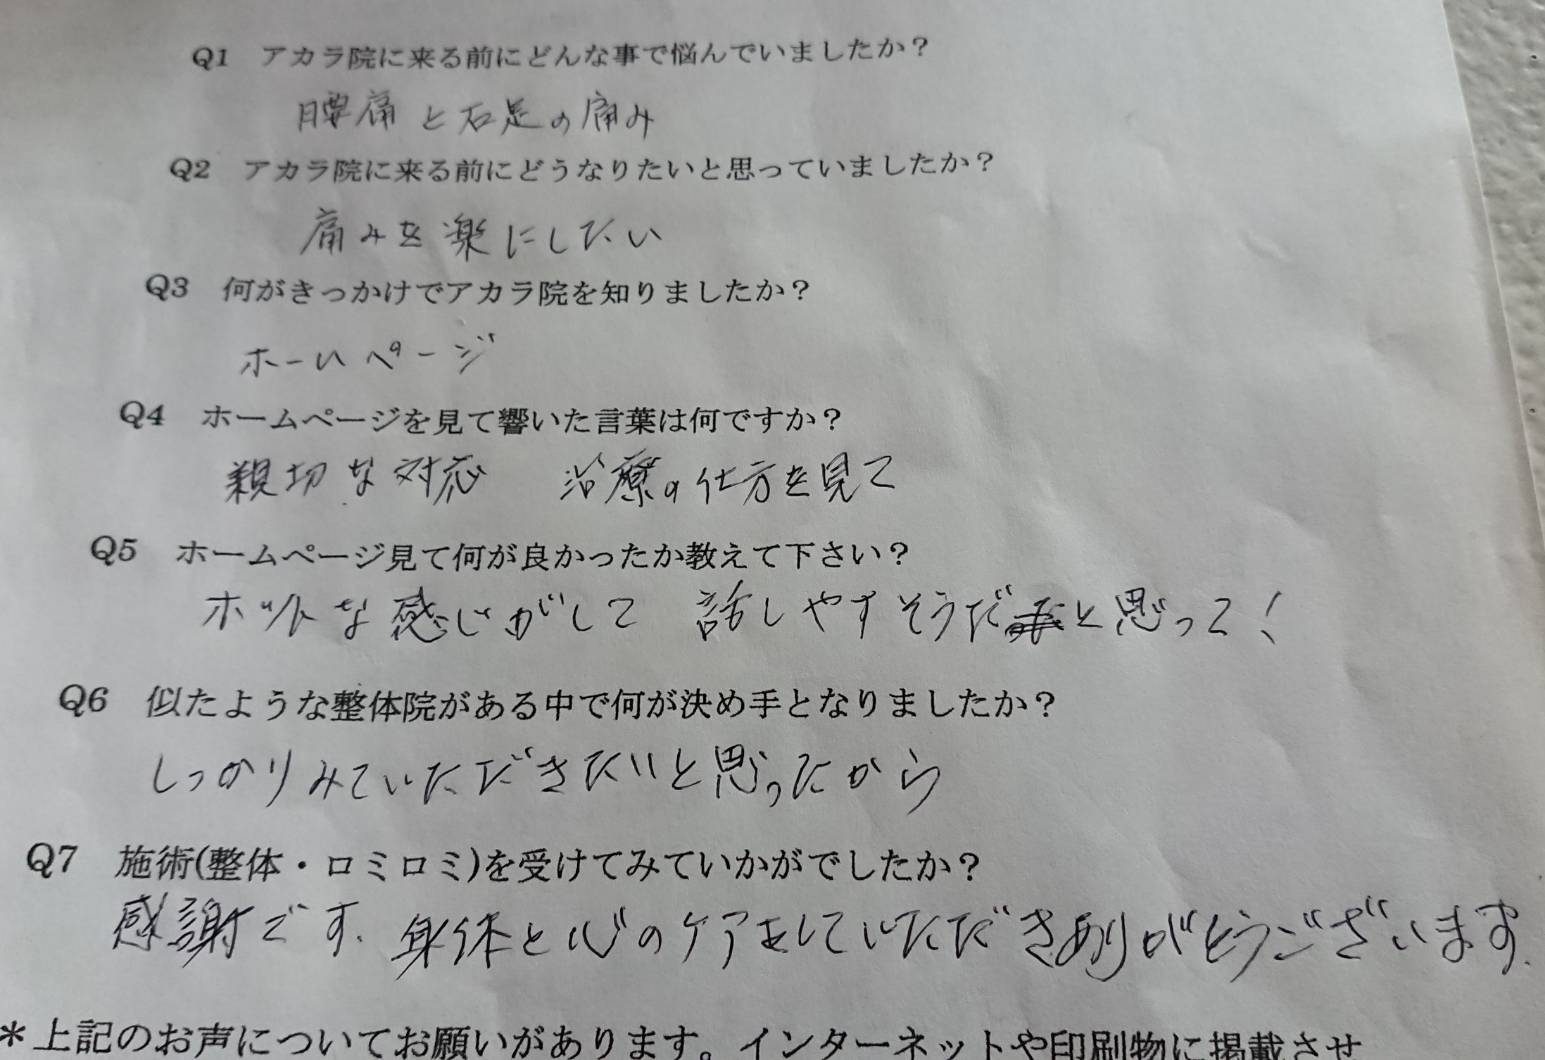 Q1 アカラ院に来る前にどんな事で悩んでいましたか？
腰痛と右足の痛み
Q2 アカラ院に来る前にどうなりたいと思っていましたか？
痛みを楽にしたい
Q3 何がきっかけでアカラ院を知りましたか？
ホームページ
Q4 ホームページを見て響いた言葉は何ですか？
親切な対応 治療の仕方を見て
Q5 ホームページ見て何が良かったか教えて下さい？
ホットな感じがして 話しやすそうだと思って！
Q6 似たような整体院がある中で何が決め手となりましたか？
しっかりみていただきたいと思ったから
Q7 施術(整体・ロミロミ)を受けてみていかがでしたか？
感謝です. 身体と心のケアをしていただきありがとうございます.
＊上記のお声についてお願いがあります。インターネットや印刷物に掲載させ